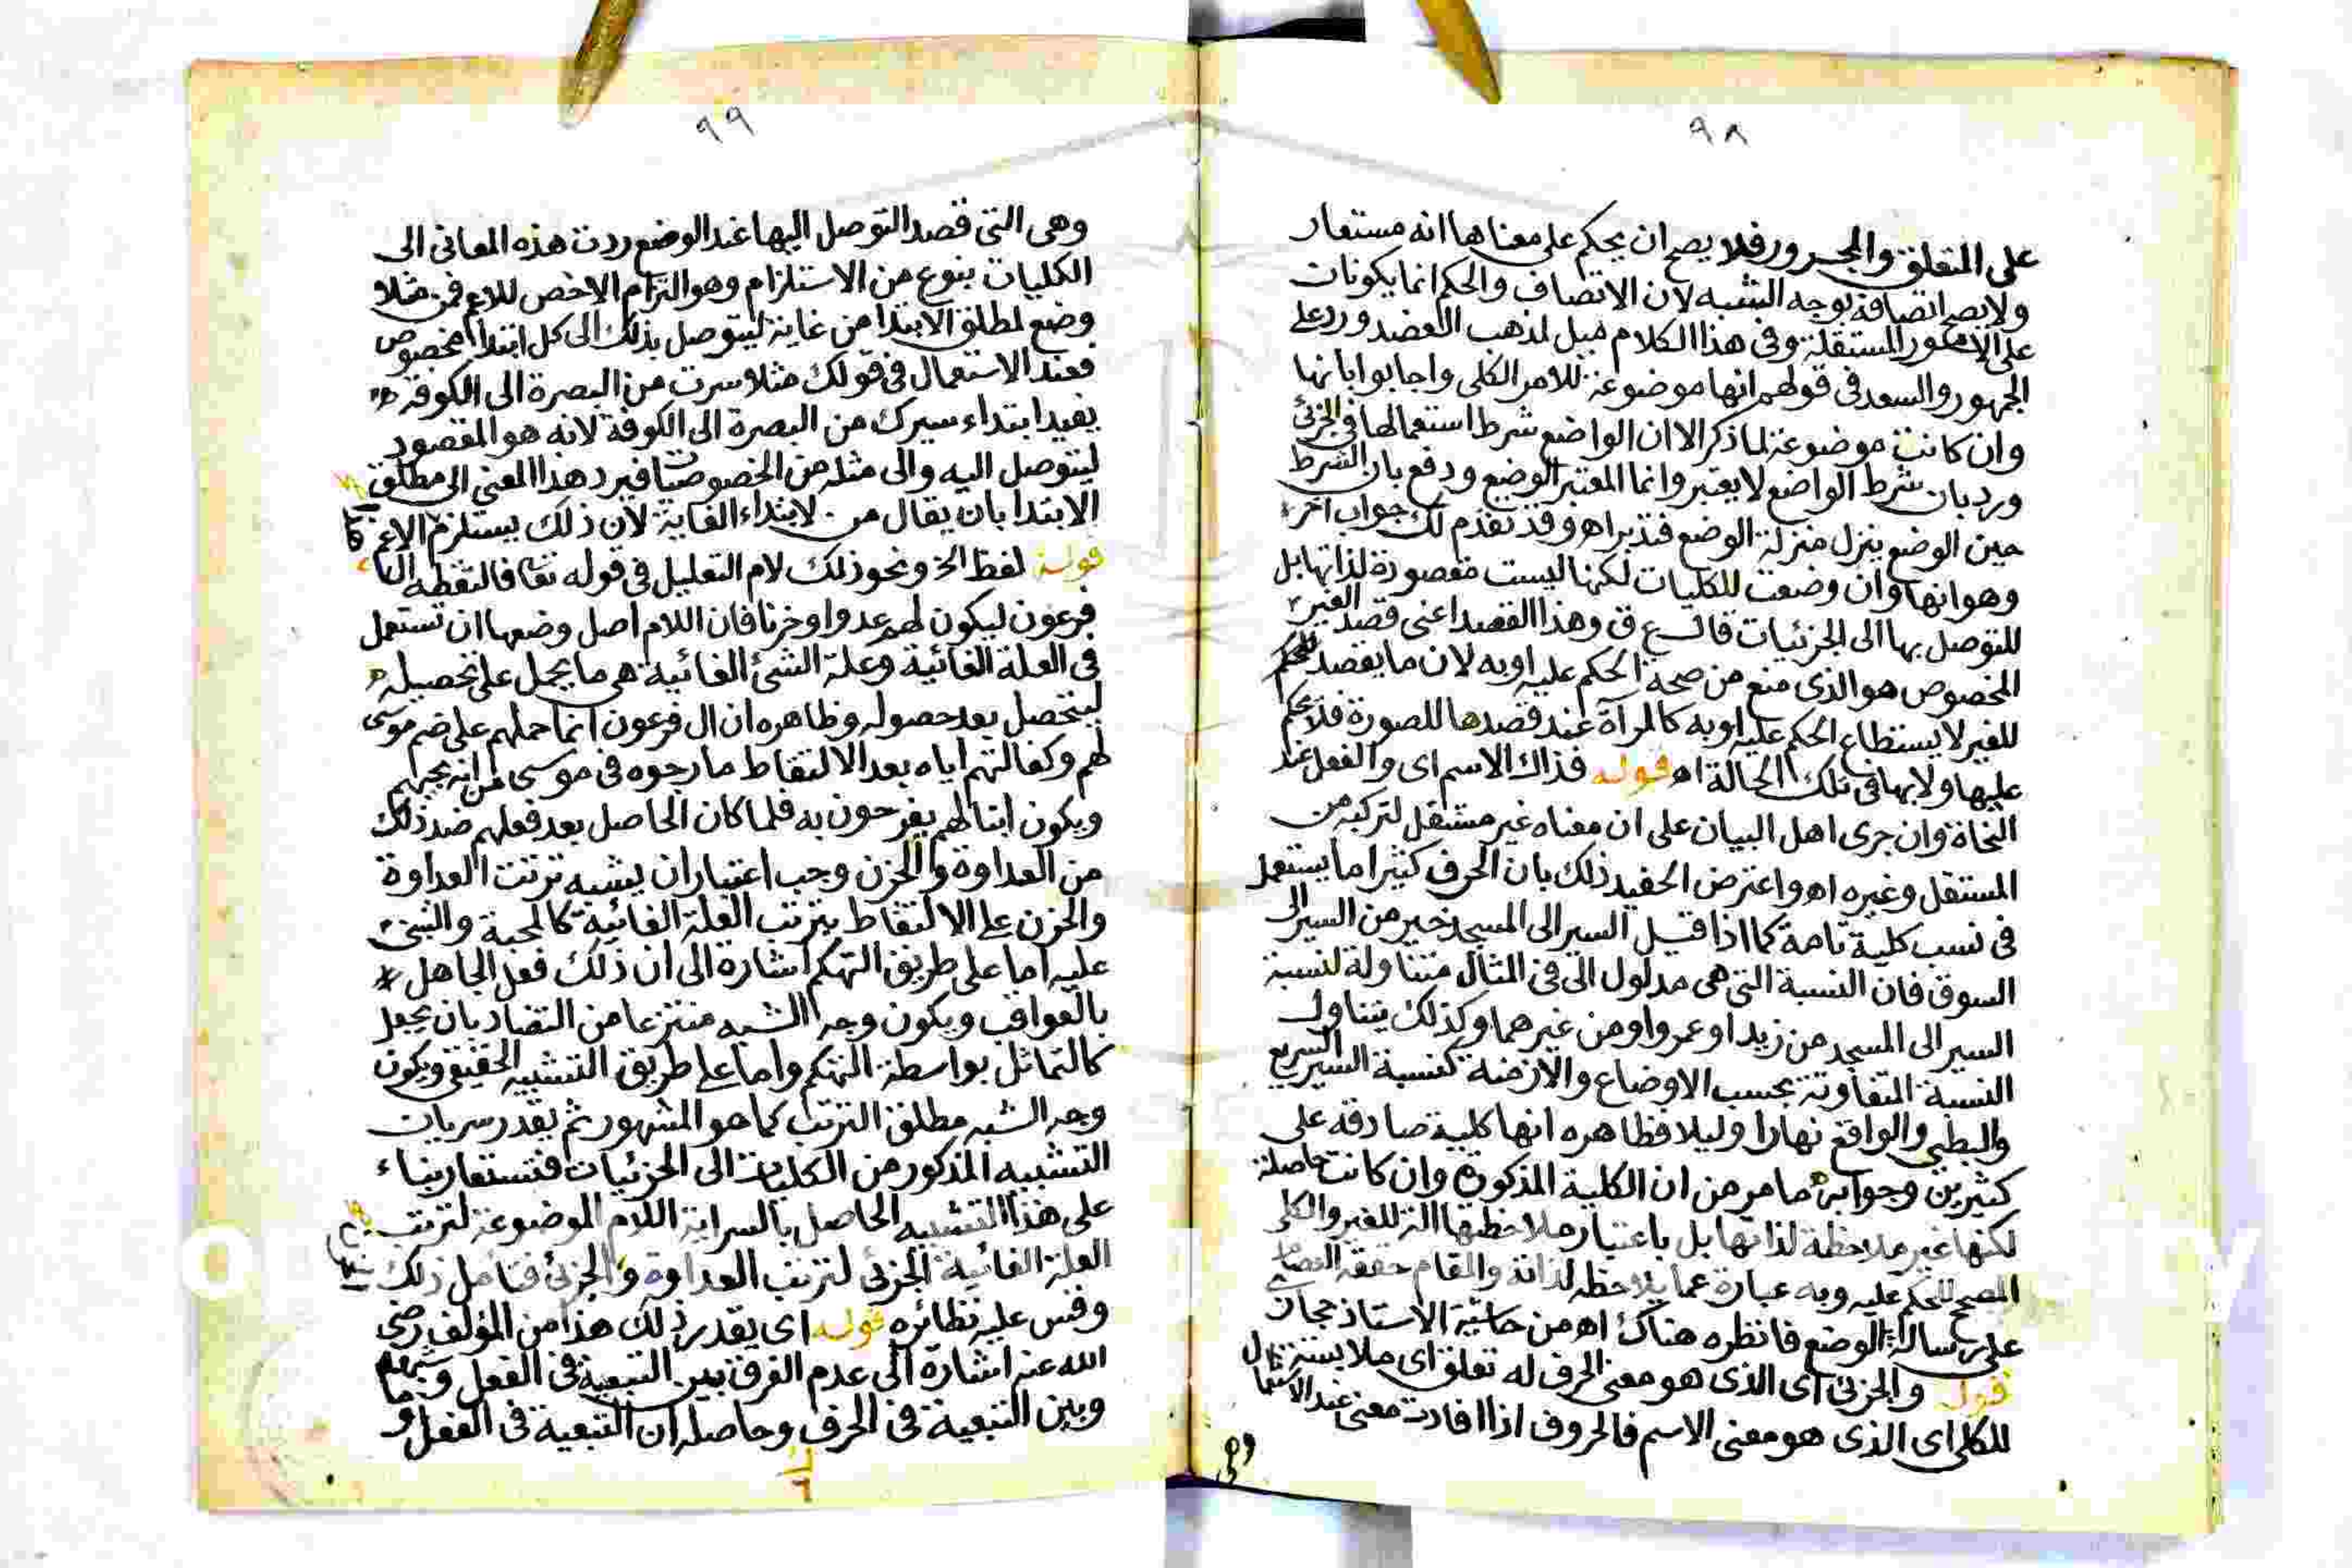 ٩٨
على المتعلق والمجرور فلا يصح ان يحكم على معناها انه مستعار
ولا يصح اتصافه بوجه الشبه لان الاتصاف والحكم انما يكونان
على الامور المستقلة وفى هذا الكلام ميل لمذهب العضد ورد على
الجمهور والسعد فى قولهم انها موضوعة للامر الكلى واجابوا بانها
وان كانت موضوعة لما ذكر الا ان الواضع شرط استعمالها فى الجزئى
ورد بان شرط الواضع لا يعتبر وانما المعتبر الوضع ودفع بان الشرط
حين الوضع ينزل منزلة الوضع فتدبر اهـ وقد تقدم لك جواب اخر
وهو انها وان وضعت للكليات لكنها ليست مقصورة لذاتها بل
للتوصل بها الى الجزئيات قال ع ق وهذا القصد اعنى قصد الغير
المخصوص هو الذى منع من صحة الحكم عليه او به لان ما يقصد للحكم
للغير لا يستطاع الحكم عليه او به كالمرآة عند قصدها للصورة فلا يحكم
عليها ولا بها فى تلك الحالة اهـ قوله فذاك الاسم اى والفعل عند
النحاة وان جرى اهل البيان على ان معناه غير مستقل لتركبه من
المستقل وغيره اهـ واعترض الحفيد ذلك بان الحرف كثيرا ما يستعمل
فى نسب كلية تامة كما اذا قيل السير الى المسجد خير من السير الى
السوق فان النسبة التى هى مدلول الى فى المثال متناولة لنسبة
السير الى المسجد من زيد او عمرو او من غيرهما وكذلك يتناول
النسبة المتفاوتة بحسب الاوضاع والازمنة كنسبة السير السريع
والبطى والواقع نهارا وليلا فظاهره انها كلية صادقة على
كثيرين وجوابه ما مر من ان الكلية المذكورة وان كانت حاصلة
لكنها غير ملاحظة لذاتها بل باعتبار ملاحظتها الة للغير والكلى
المصحح للحكم عليه وبه عبارة عما يلاحظ لذاته والمقام حققه العصام
على رسالة الوضع فانظره هناك اهـ من حاشية الاستاذ حجازى
قوله والجزئى اى الذى هو معنى الحرف له تعلق اى ملابسة
للكلى اى الذى هو معنى الاسم فالحروف اذا افادت معنى عند الاستعمال
وهى
٩٩
وهى التى قصد التوصل اليها عند الوضع ردت هذه المعانى الى
الكليات بنوع من الاستلزام وهو التزام الاخص للاعم فمن مثلا
وضع لمطلق الابتدا من غاية ليتوصل بذلك الى كل ابتدا مخصوص
فعند الاستعمال فى قولك مثلا سرت من البصرة الى الكوفة
يفيد ابتداء سيرك من البصرة الى الكوفة لانه هو المقصود
ليتوصل اليه والى مثله من الخصوصيات فيرد هذا المعنى الى مطلق
الابتدا بان يقال من لابتداء الغاية لان ذلك يستلزم الاعم
قوله لفظ الخ ونحو ذلك لام التعليل فى قوله تعا فالتقطه ال
فرعون ليكون لهم عدوا وحزنا فان اللام اصل وضعها ان تستعمل
فى العلة الغائية وعلة الشئ الغائية هى ما يحمل على تحصيله
ليتحصل بعد حصوله وظاهره ان ال فرعون انما حملهم على ضم موسى
لهم وكفالتهم اياه بعد الالتقاط ما رجوه فى موسى من انه يحبهم
ويكون ابنا لهم يفرحون به فلما كان الحاصل بعد فعلهم ضد ذلك
من العداوة والحزن وجب اعتبار ان يشبه ترتب العداوة
والحزن على الالتقاط بترتب العلة الغائية كالمحبة والتبنى
عليه اما على طريق التهكم اشارة الى ان ذلك فعل الجاهل
بالعواقب ويكون وجه الشبه منتزعا من التضاد بان يجعل
كالتماثل بواسطة التهكم واما على طريق التشبيه الحقيقى ويكون
وجه الشبه مطلق الترتب كما هو المشهور ثم يقدر سريان
التشبيه المذكور من الكليات الى الجزئيات فتستعار بناء
على هذا التشبيه الحاصل بالسراية اللام الموضوعة لترتب
العلة الغائية الجزئى لترتب العداوة والجزئى فتامل ذلك
وقس عليه نظائره قوله اى يقدر ذلك هذا من المؤلف رضى
الله عنه اشارة الى عدم الفرق بين التبعية فى الفعل
وبين التبعية فى الحرف وحاصله ان التبعية فى الفعل و